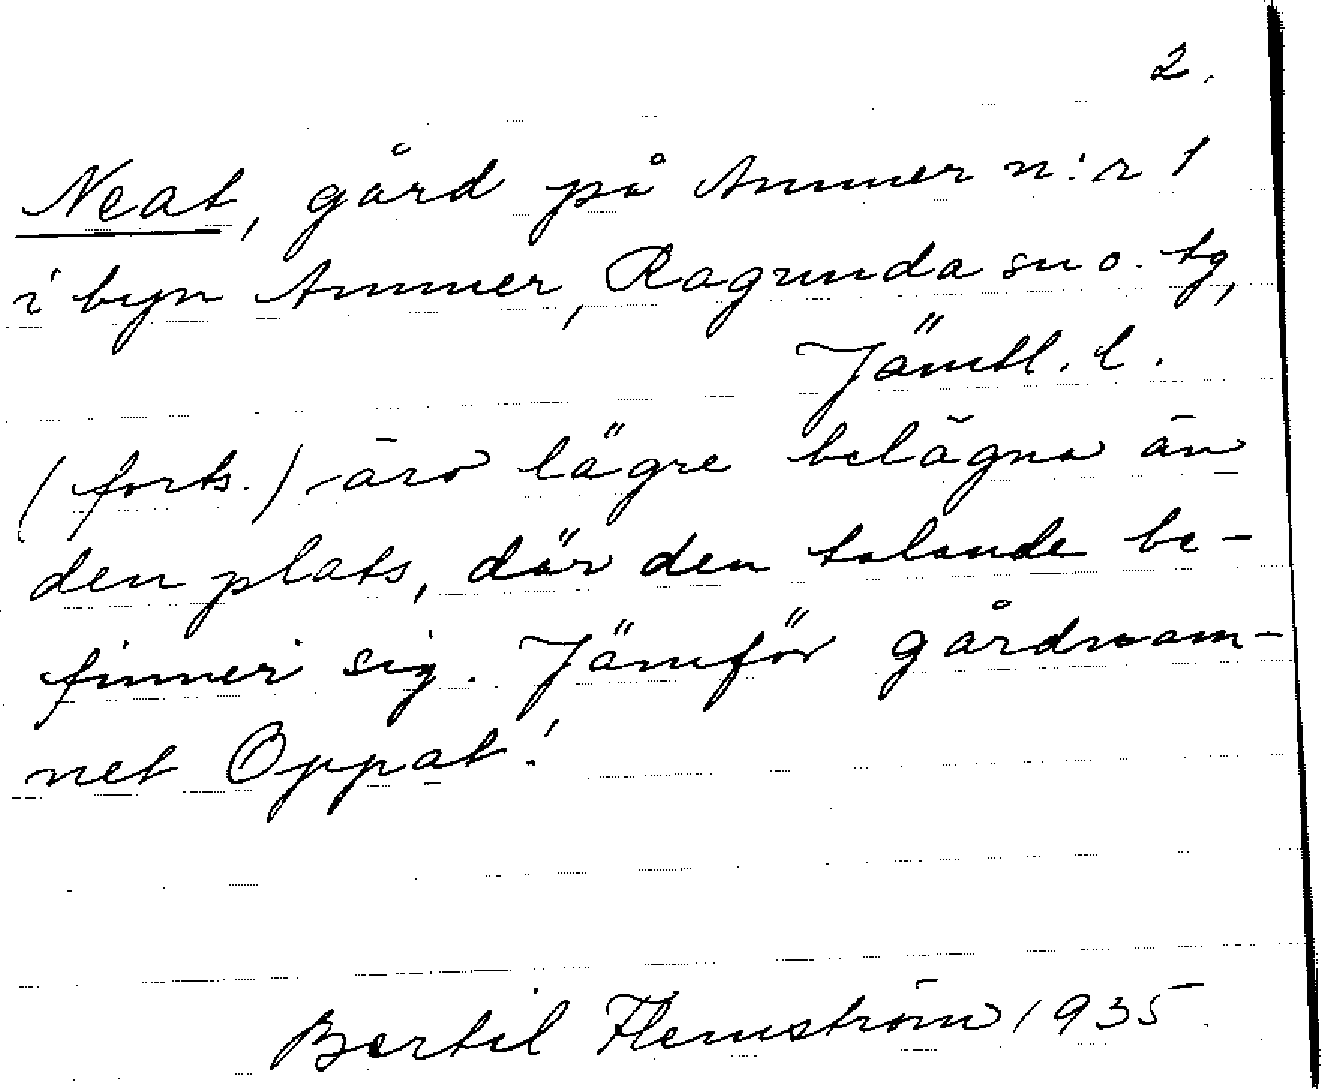 2.
Neat, gård på Ammer n:r 1
i byn Ammer, Ragunda sn o. tg,
Jämtl. l.
(forts.) äro lägre belägna än
den plats, där den talande be-
finner sig. Jämför gårdnam-
net Oppat!
Bertil Flemström 1935